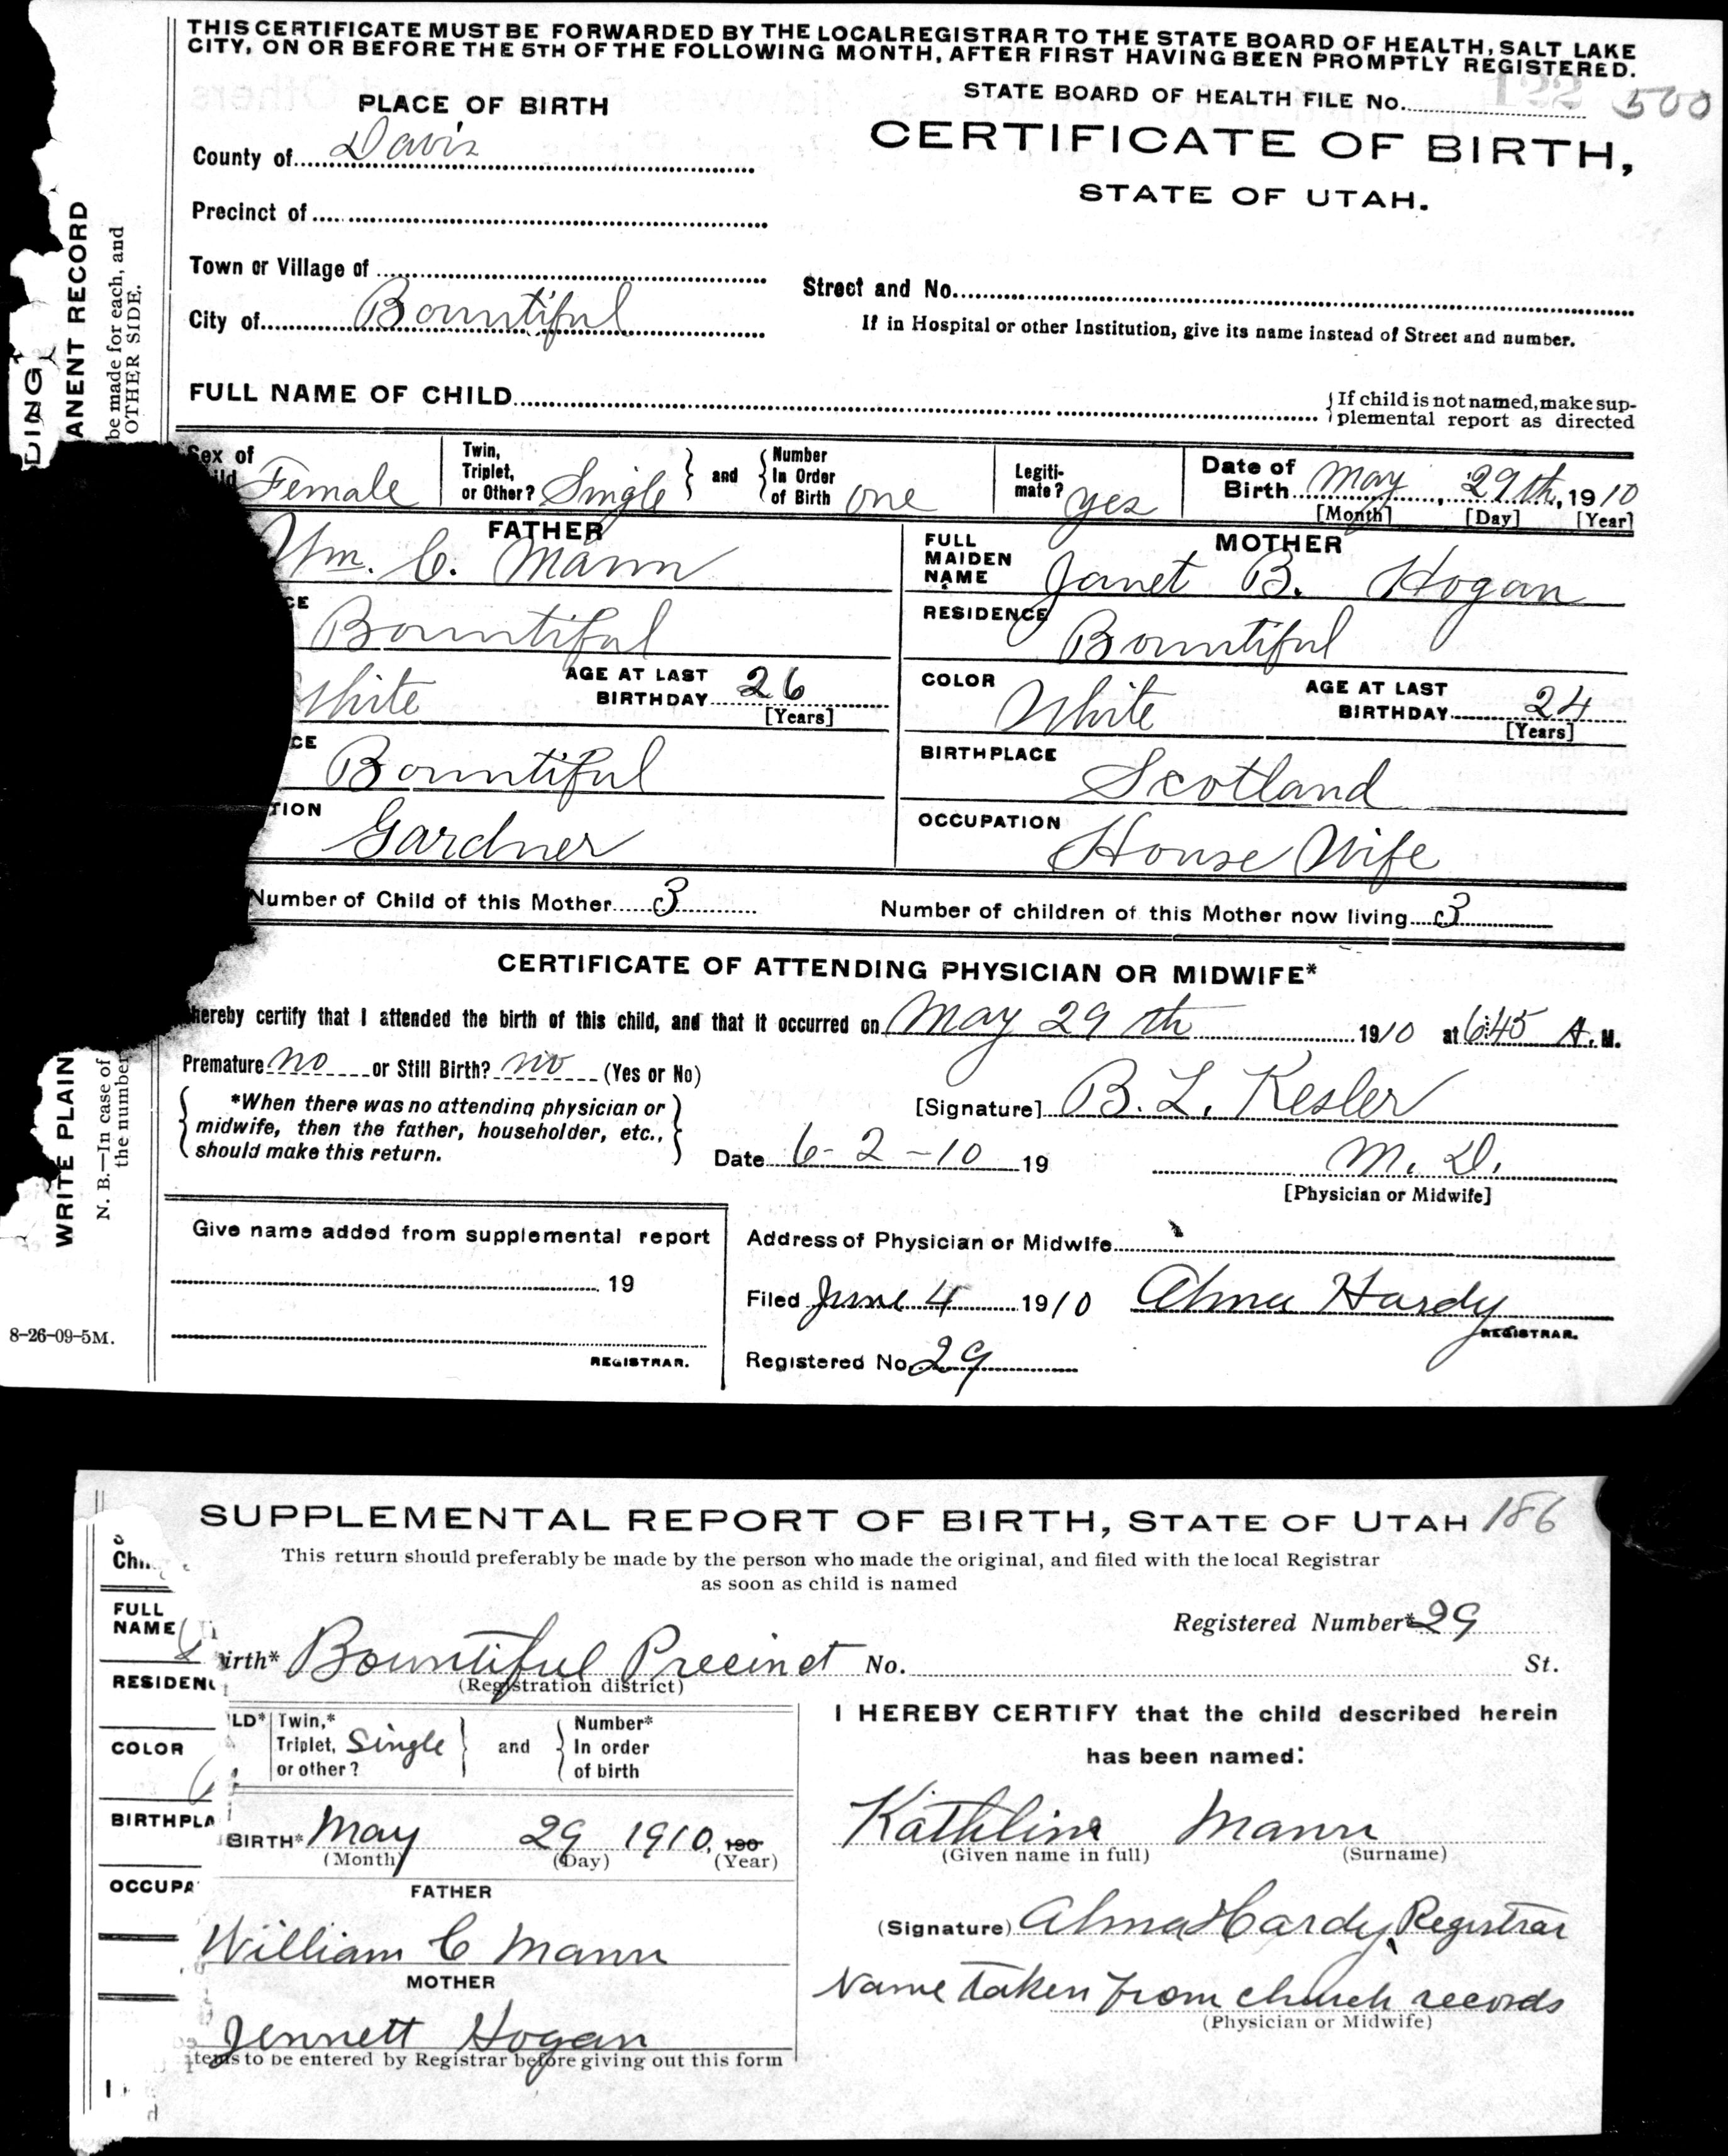 THIS CERTIFICATE MUST BE FORWARDED BY THE LOCAL REGISTRAR TO THE STATE BOARD OF HEALTH, SALT LAKE
CITY, ON OR BEFORE THE 5TH OF THE FOLLOWING MONTH, AFTER FIRST HAVING BEEN PROMPTLY REGISTERED.
STATE BOARD OF HEALTH FILE No. 122 500
PLACE OF BIRTH
CERTIFICATE OF BIRTH,
STATE OF UTAH.
County of Davis
Precinct of
Town or Village of
Street and No.
City of Bountiful
If in Hospital or other Institution, give its name instead of Street and number.
FULL NAME OF CHILD
If child is not named, make sup-
plemental report as directed
Sex of
ild Female
Twin,
Triplet,
or Other? Single
and
Number
In Order
of Birth one
Legiti-
mate? yes
Date of
Birth May 29th, 1910
[Month] [Day] [Year]
FATHER
Wm. C. Mann
CE
Bountiful
White
AGE AT LAST
BIRTHDAY 26
[Years]
CE
Bountiful
TION
Gardner
MOTHER
FULL
MAIDEN
NAME Janet B. Hogan
RESIDENCE
Bountiful
COLOR
White
AGE AT LAST
BIRTHDAY 24
[Years]
BIRTHPLACE
Scotland
OCCUPATION
House Wife
Number of Child of this Mother 3
Number of children of this Mother now living 3
CERTIFICATE OF ATTENDING PHYSICIAN OR MIDWIFE*
hereby certify that I attended the birth of this child, and that it occurred on May 29th 1910 at 6:45 A.M.
Premature no or Still Birth? no (Yes or No)
*When there was no attending physician or
midwife, then the father, householder, etc.,
should make this return.
[Signature] B. L. Kesler
Date 6-2-10 19
M. D.
[Physician or Midwife]
Give name added from supplemental report
19
REGISTRAR.
Address of Physician or Midwife
Filed June 4 1910 Alma Hardy
REGISTRAR.
Registered No. 29
DING
ANENT RECORD
be made for each, and
OTHER SIDE.
WRITE PLAIN
N. B.—In case of
the number
8-26-09-5M.
SUPPLEMENTAL REPORT OF BIRTH, STATE OF UTAH 186
This return should preferably be made by the person who made the original, and filed with the local Registrar
as soon as child is named
Registered Number* 29
irth* Bountiful Precinct No. St.
(Registration district)
LD*
Twin,*
Triplet, Single
or other?
and
Number*
In order
of birth
BIRTH* May 29 1910, 190
(Month) (Day) (Year)
FATHER
William C Mann
MOTHER
Jennett Hogan
tems to be entered by Registrar before giving out this form
I HEREBY CERTIFY that the child described herein
has been named:
Kathline Mann
(Given name in full) (Surname)
(Signature) Alma Hardy, Registrar
Name taken from church records
(Physician or Midwife)
FULL
NAME
RESIDEN
COLOR
BIRTHPLA
OCCUPA